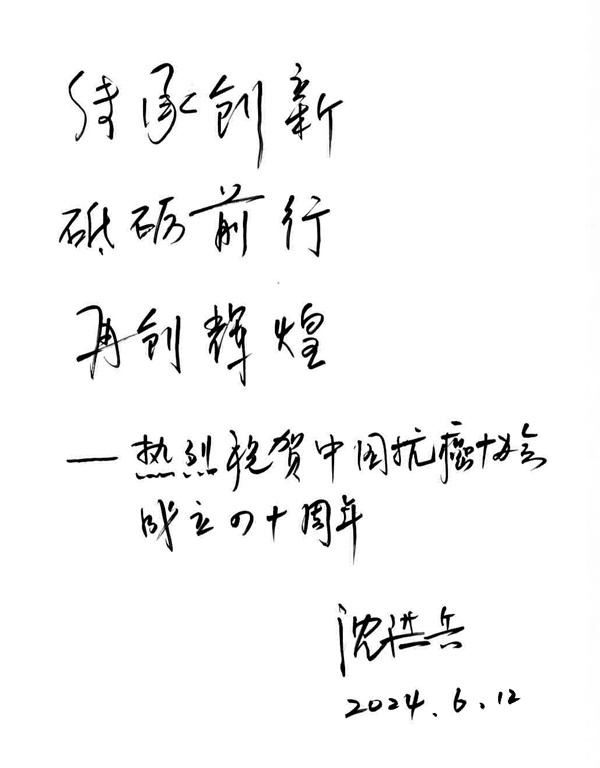 传承创新
砥砺前行
再创辉煌
——热烈祝贺中国抗癌协会
成立四十周年
沈洪兵
2024.6.12